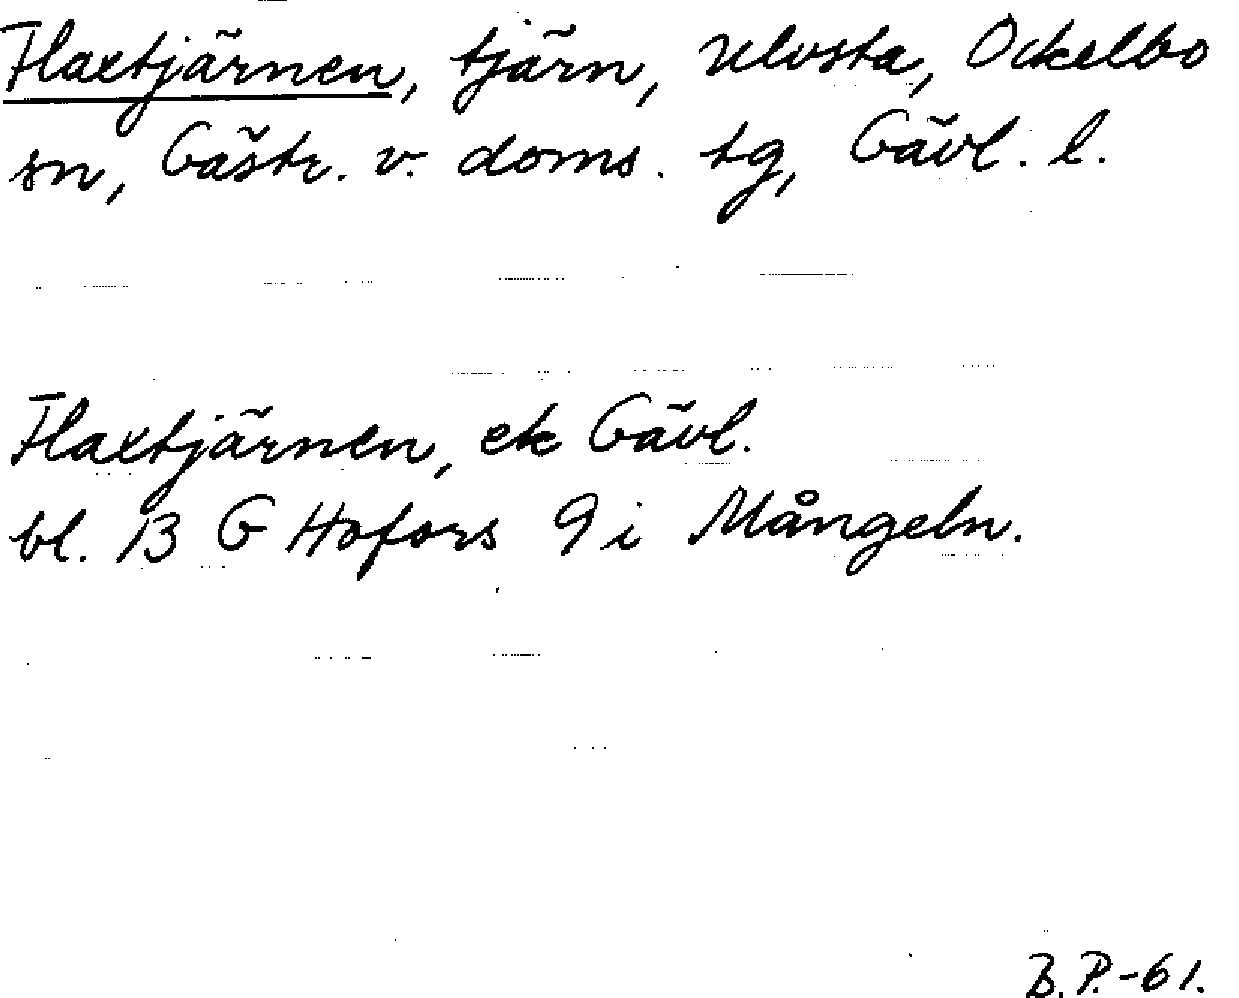 Flaxtjärnen, tjärn, Ulvsta, Ockelbo
sn, Gästr. v. doms. tg, Gävl. l.
Flaxtjärnen, ek Gävl.
bl. B G Hofors 9 i Mångeln.
B.P.-61.